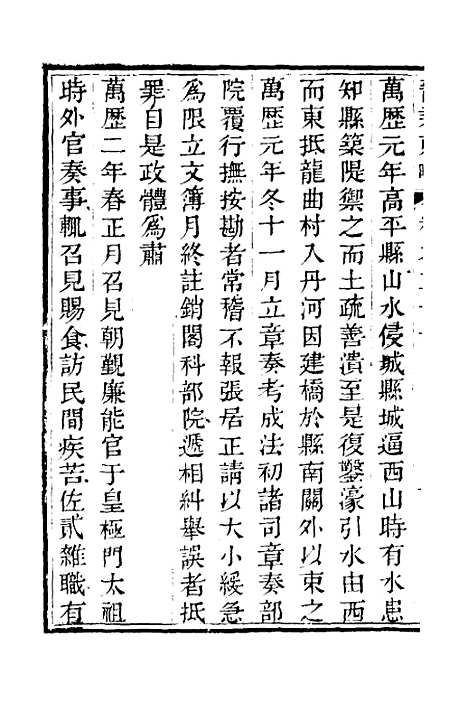 萬歷元年高平縣山水侵城縣城逼西山時有水患
知縣築隄禦之而土疏善潰至是復鑿濠引水由西
而東抵龍曲村入丹河因建橋於縣南關外以束之
萬歷元年冬十一月立章奏考成法初諸司章奏部
院覆行撫按勘者常稽不報張居正請以大小緩急
爲限立文簿月終註銷閣科部院遞相糾舉誤者抵
罪自是政體爲肅
萬歷二年春正月召見朝覲廉能官于皇極門太祖
時外官奏事輒召見賜食訪民間疾苦佐貳雜職有